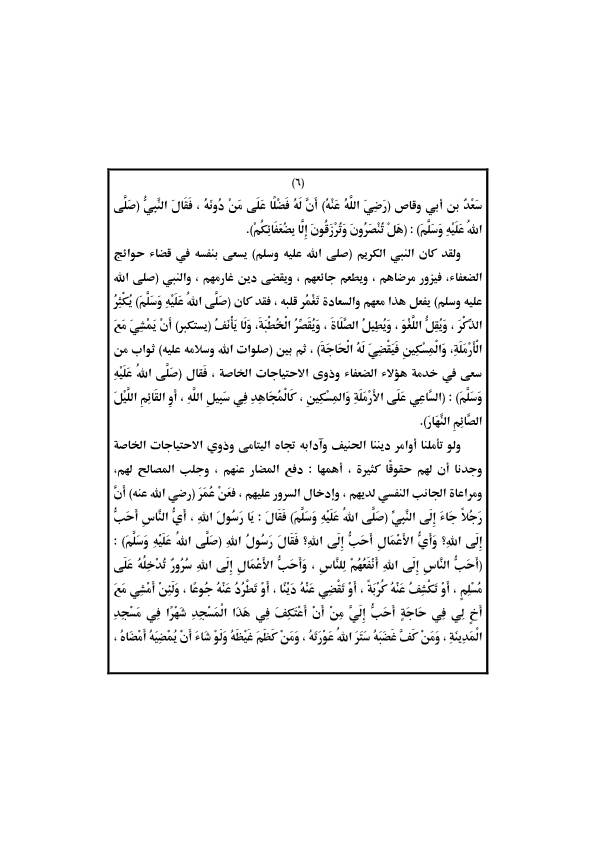 (٦)
سَعْدُ بن أبي وقاص (رَضِيَ اللَّهُ عَنْهُ) أَنَّ لَهُ فَضْلًا عَلَى مَنْ دُونَهُ ، فَقَالَ النَّبِيُّ (صَلَّى
اللهُ عَلَيْهِ وَسَلَّمَ) : (هَلْ تُنْصَرُونَ وَتُرْزَقُونَ إِلَّا بِضُعَفَائِكُمْ).
ولقد كان النبي الكريم (صلى الله عليه وسلم) يسعى بنفسه في قضاء حوائج
الضعفاء، فيزور مرضاهم ، ويطعم جائعهم ، ويقضى دين غارمهم ، والنبي (صلى الله
عليه وسلم) يفعل هذا معهم والسعادة تَغْمُر قلبه ، فقد كان (صَلَّى اللهُ عَلَيْهِ وَسَلَّمَ) يُكْثِرُ
الذِّكْرَ ، وَيُقِلُّ اللَّغْوَ ، وَيُطِيلُ الصَّلَاةَ ، وَيُقَصِّرُ الْخُطْبَةَ، وَلَا يَأْنَفُ (يستكبر) أَنْ يَمْشِيَ مَعَ
الْأَرْمَلَةِ، وَالْمِسْكِينِ فَيَقْضِيَ لَهُ الْحَاجَةَ) ، ثم بين (صلوات الله وسلامه عليه) ثواب من
سعى في خدمة هؤلاء الضعفاء وذوى الاحتياجات الخاصة ، فقال (صَلَّى اللهُ عَلَيْهِ
وَسَلَّمَ) : (السَّاعِي عَلَى الأَرْمَلَةِ وَالمِسْكِينِ ، كَالْمُجَاهِدِ فِي سَبِيلِ اللَّهِ ، أَوِ القَائِمِ اللَّيْلَ
الصَّائِمِ النَّهَارَ).
ولو تأملنا أوامر ديننا الحنيف وآدابه تجاه اليتامى وذوي الاحتياجات الخاصة
وجدنا أن لهم حقوقًا كثيرة ، أهمها : دفع المضار عنهم ، وجلب المصالح لهم،
ومراعاة الجانب النفسي لديهم ، وإدخال السرور عليهم ، فعَنْ عُمَرَ (رضي الله عنه) أَنَّ
رَجُلاً جَاءَ إِلَى النَّبِيِّ (صَلَّى اللهُ عَلَيْهِ وَسَلَّمَ) فَقَالَ : يَا رَسُولَ اللهِ ، أَيُّ النَّاسِ أَحَبُّ
إِلَى اللهِ؟ وَأَيُّ الأَعْمَالِ أَحَبُّ إِلَى اللهِ؟ فَقَالَ رَسُولُ اللهِ (صَلَّى اللهُ عَلَيْهِ وَسَلَّمَ) :
(أَحَبُّ النَّاسِ إِلَى اللهِ أَنْفَعُهُمْ لِلنَّاسِ ، وَأَحَبُّ الأَعْمَالِ إِلَى اللهِ سُرُورٌ تُدْخِلُهُ عَلَى
مُسْلِمٍ ، أَوْ تَكْشِفُ عَنْهُ كُرْبَةً ، أَوْ تَقْضِي عَنْهُ دَيْنًا ، أَوْ تَطْرُدُ عَنْهُ جُوعًا ، وَلَئِنْ أَمْشِي مَعَ
أَخٍ لِي فِي حَاجَةٍ أَحَبُّ إِلَيَّ مِنْ أَنْ أَعْتَكِفَ فِي هَذَا الْمَسْجِدِ شَهْرًا فِي مَسْجِدِ
الْمَدِينَةِ ، وَمَنْ كَفَّ غَضَبَهُ سَتَرَ اللهُ عَوْرَتَهُ ، وَمَنْ كَظَمَ غَيْظَهُ وَلَوْ شَاءَ أَنْ يُمْضِيَهُ أَمْضَاهُ ،